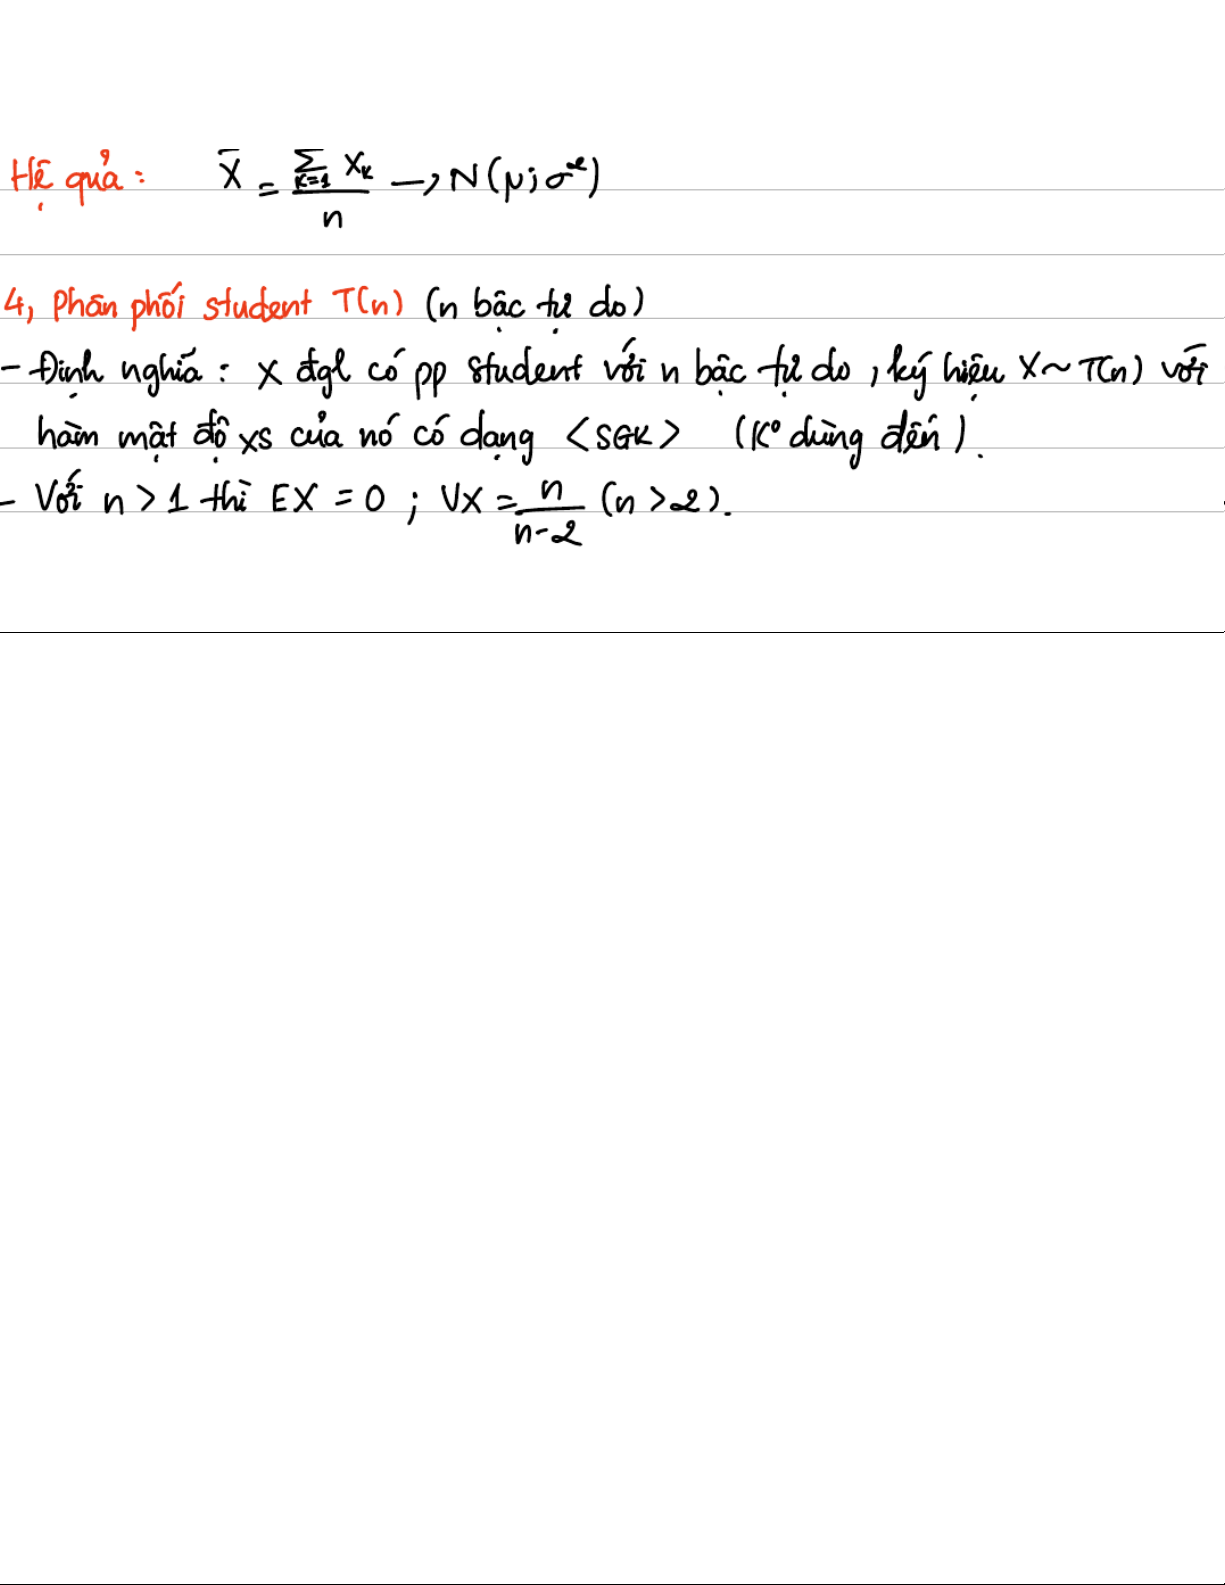 Hệ quả: X̄ = (∑_{K=1} X_K)/n → N(μ; σ²)
4, Phân phối student T(n) (n bậc tự do)
- Định nghĩa: X đgl có pp student với n bậc tự do, ký hiệu X ~ T(n) với
hàm mật độ xs của nó có dạng <SGK> (K° dùng đến).
- Với n > 1 thì EX = 0 ; VX = n/(n-2) (n > 2).